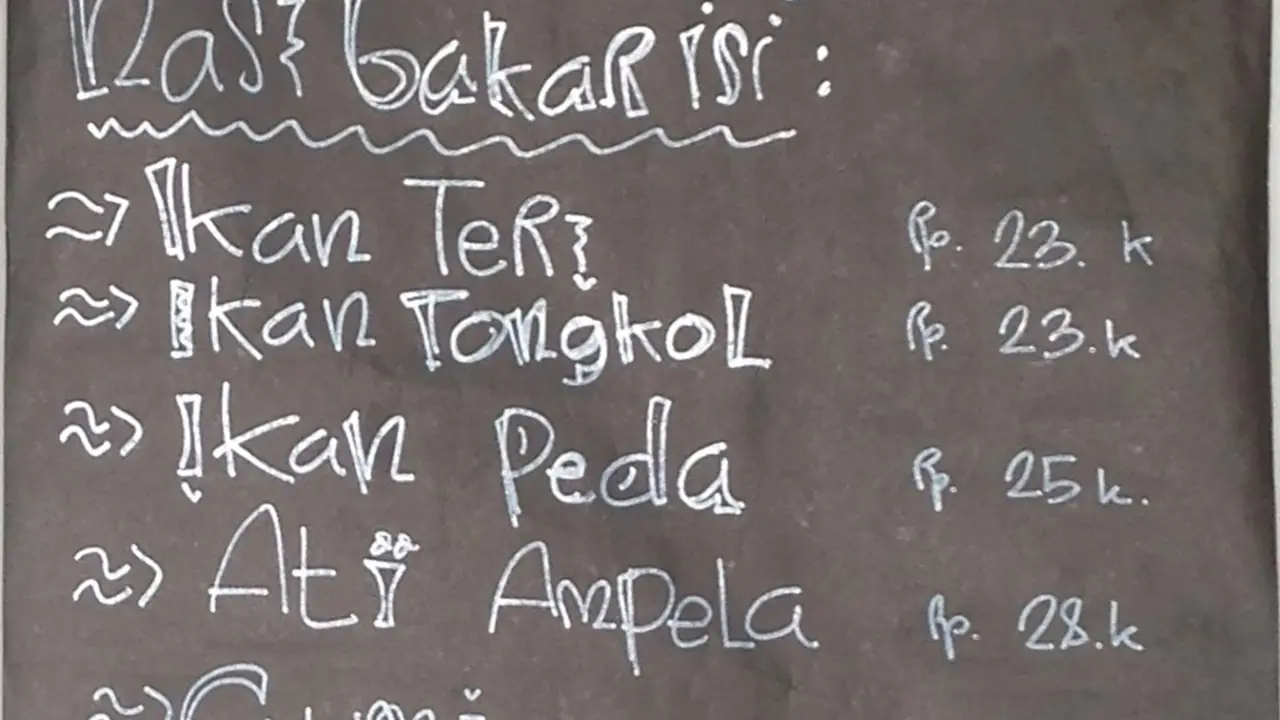 Nasi bakar isi :
≈> Ikan Teri Rp. 23. k
≈> Ikan Tongkol Rp. 23.k
≈> Ikan Peda Rp. 25k.
≈> Ati Ampela Rp. 28.k